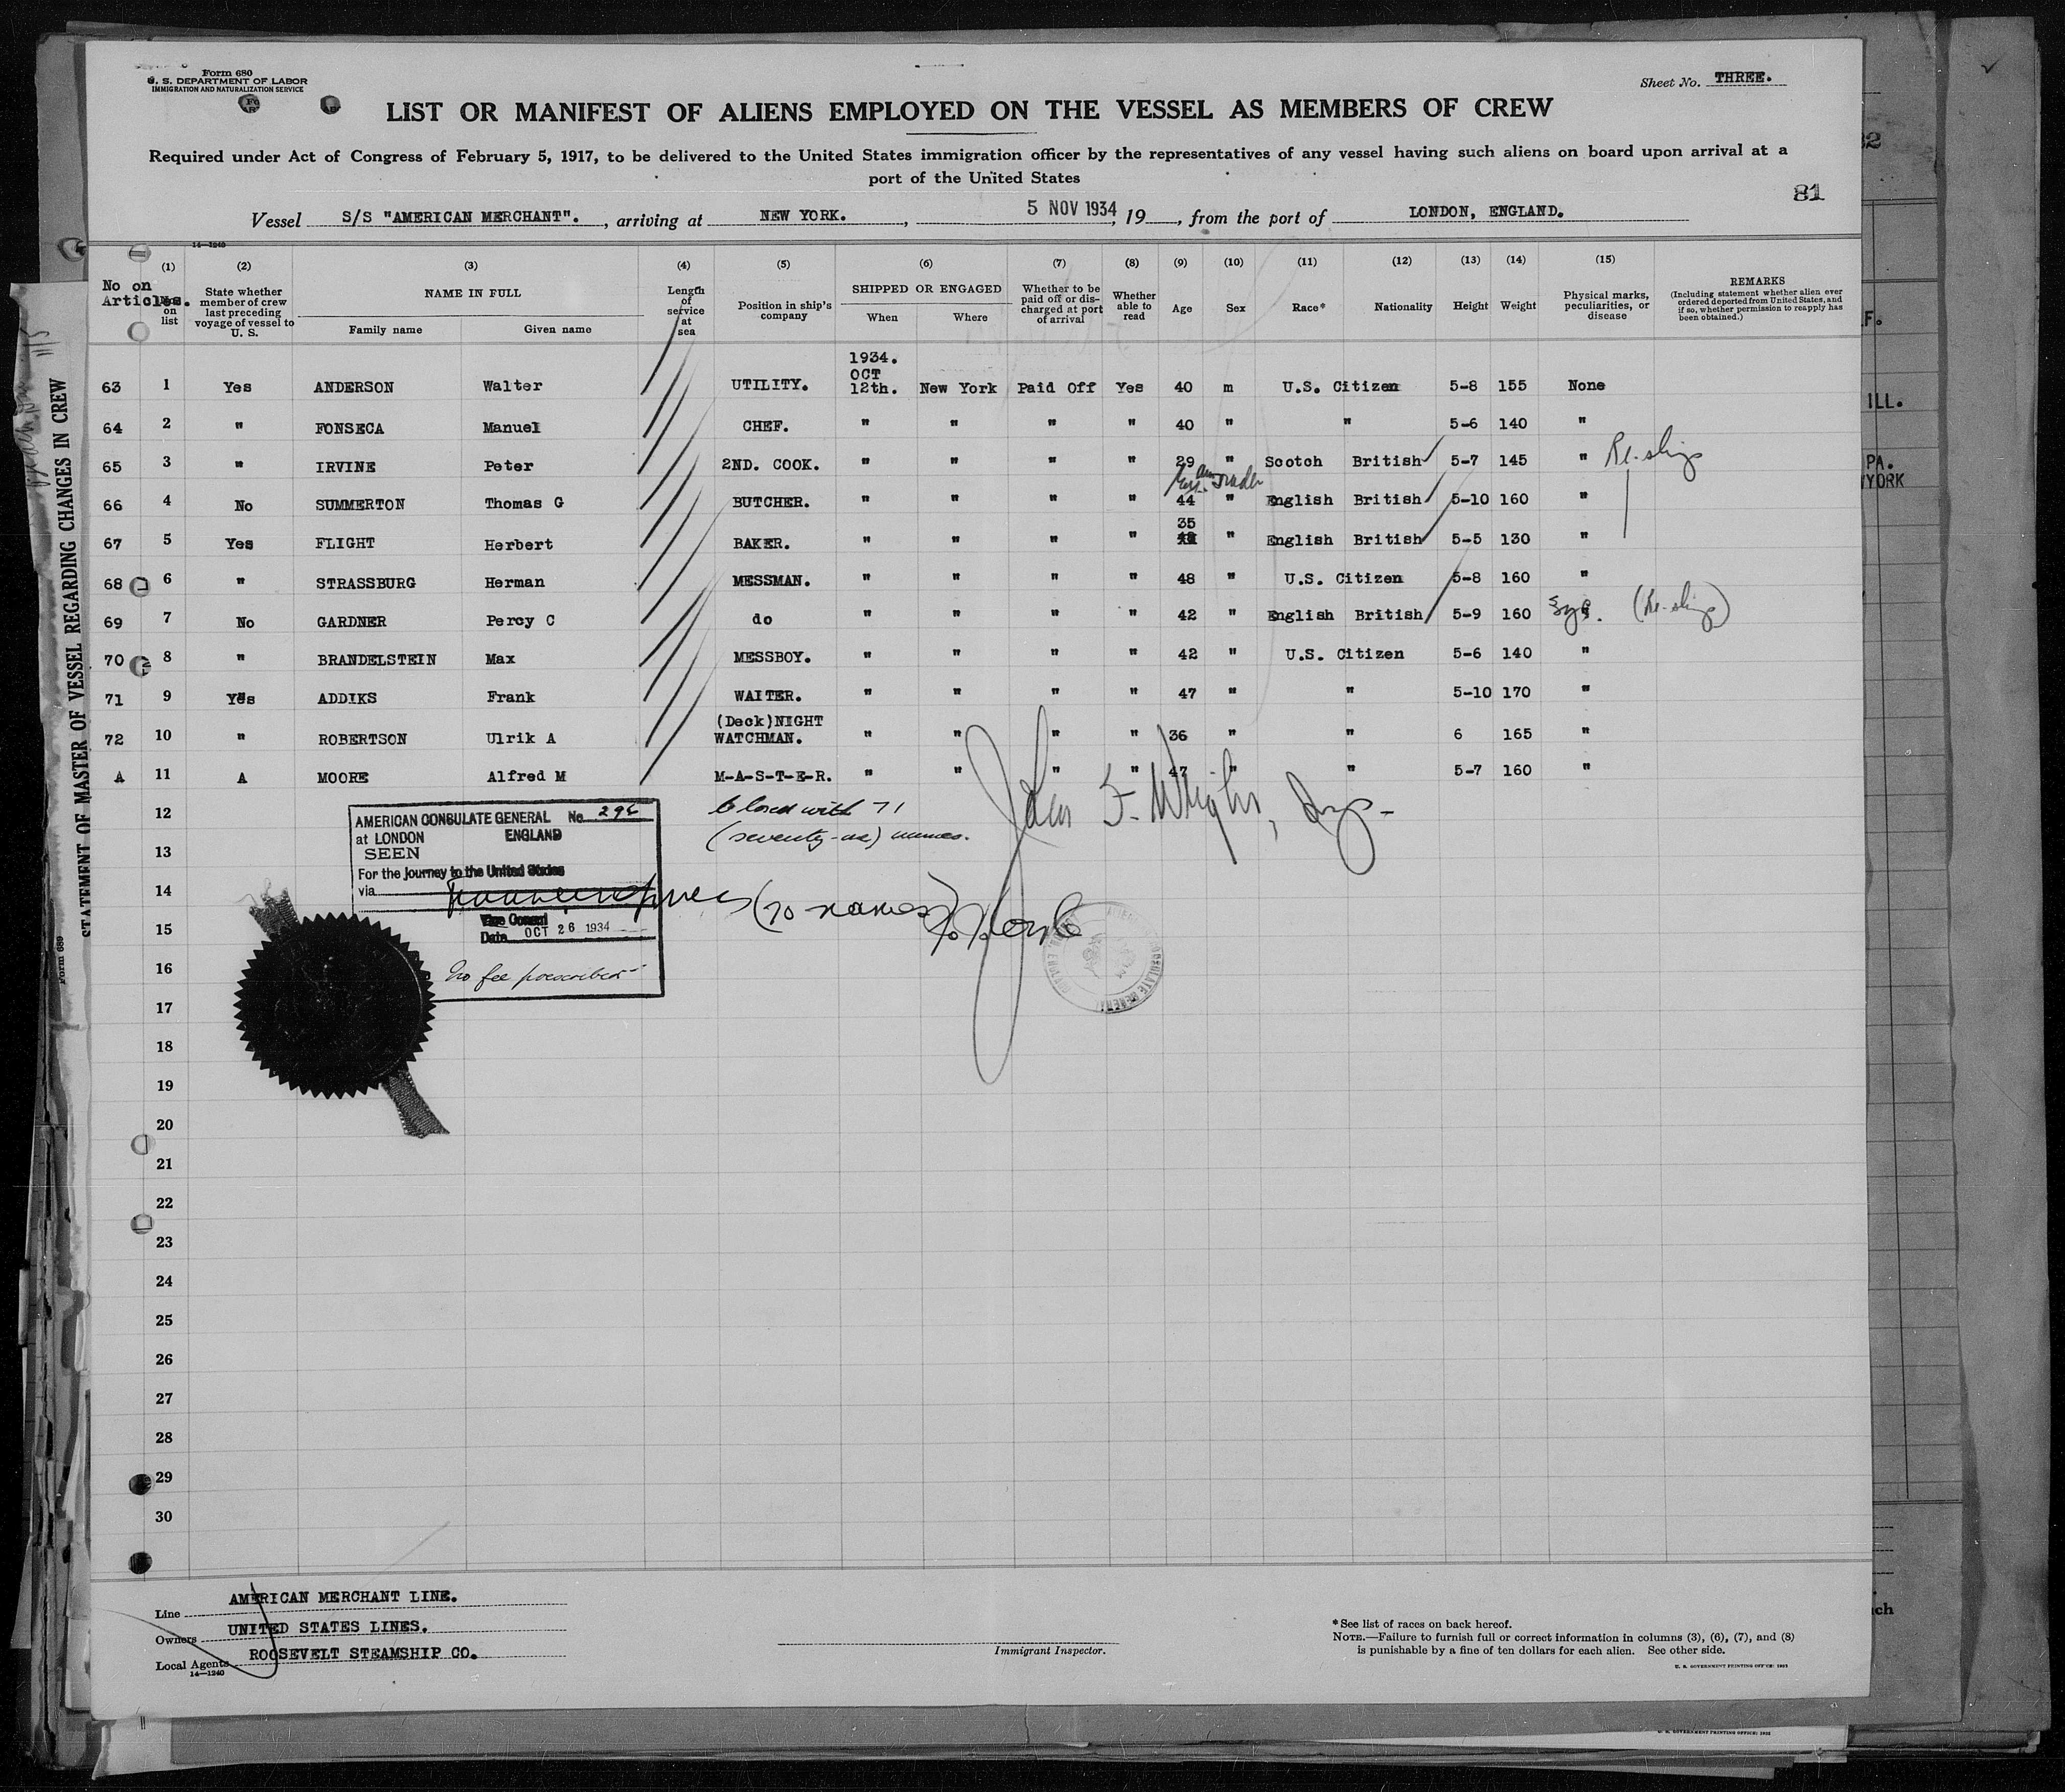 Form 680
U. S. DEPARTMENT OF LABOR
IMMIGRATION AND NATURALIZATION SERVICE
Sheet No. THREE.
LIST OR MANIFEST OF ALIENS EMPLOYED ON THE VESSEL AS MEMBERS OF CREW
Required under Act of Congress of February 5, 1917, to be delivered to the United States immigration officer by the representatives of any vessel having such aliens on board upon arrival at a
port of the United States
81
Vessel S/S "AMERICAN MERCHANT". , arriving at NEW YORK. , 5 NOV 1934, 19 , from the port of LONDON, ENGLAND.
14—1240
No on Articles. (1) No. on list (2) State whether member of crew last preceding voyage of vessel to U. S. (3) NAME IN FULL Family name Given name (4) Length of service at sea (5) Position in ship's company (6) SHIPPED OR ENGAGED When Where (7) Whether to be paid off or discharged at port of arrival (8) Whether able to read (9) Age (10) Sex (11) Race* (12) Nationality (13) Height (14) Weight (15) Physical marks, peculiarities, or disease REMARKS (Including statement whether alien ever ordered deported from United States, and if so, whether permission to reapply has been obtained.)
1934.
OCT
63 1 Yes ANDERSON Walter UTILITY. 12th. New York Paid Off Yes 40 m U.S. Citizen 5-8 155 None
64 2 " FONSECA Manuel CHEF. " " " " 40 " " 5-6 140 "
65 3 " IRVINE Peter 2ND. COOK. " " " " 29 " Scotch British 5-7 145 " Re-ships
66 4 No SUMMERTON Thomas G BUTCHER. " " " " 44 " English British 5-10 160 "
35
67 5 Yes FLIGHT Herbert BAKER. " " " " " English British 5-5 130 "
68 6 " STRASSBURG Herman MESSMAN. " " " " 48 " U.S. Citizen 5-8 160 "
69 7 No GARDNER Percy C do " " " " 42 " English British 5-9 160 " (Re-ships)
70 8 " BRANDELSTEIN Max MESSBOY. " " " " 42 " U.S. Citizen 5-6 140 "
71 9 Yes ADDIKS Frank WAITER. " " " " 47 " " 5-10 170 "
(Deck)NIGHT
72 10 " ROBERTSON Ulrik A WATCHMAN. " " " " 36 " " 6 165 "
A 11 A MOORE Alfred M M-A-S-T-E-R. " " " " 47 " " 5-7 160 "
12 Closed with 71
13 (seventy-one) names.
14
15
16
17
18
19
20
21
22
23
24
25
26
27
28
29
30
AMERICAN CONSULATE GENERAL No. 296
at LONDON ENGLAND
SEEN
For the journey to the United States
via
(70 names)
Vice Consul
Date OCT 26 1934
No fee prescribed
John F. Wright, Insp-
Line AMERICAN MERCHANT LINE.
Owners UNITED STATES LINES.
Local Agents ROOSEVELT STEAMSHIP CO.
14—1240
Immigrant Inspector.
*See list of races on back hereof.
NOTE.—Failure to furnish full or correct information in columns (3), (6), (7), and (8)
is punishable by a fine of ten dollars for each alien. See other side.
STATEMENT OF MASTER OF VESSEL REGARDING CHANGES IN CREW
Form 680
ILL.
PA.
YORK